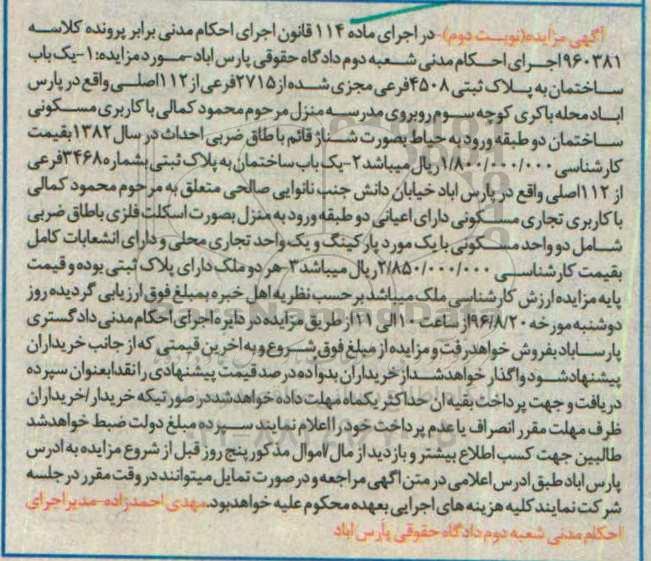 آگهی مزایده(نوبت دوم)- در اجرای ماده ۱۱۴ قانون اجرای احکام مدنی برابر پرونده کلاسه
۹۶۰۳۸۱اجرای احکام مدنی شعبه دوم دادگاه حقوقی پارس اباد-مورد مزایده:۱-یک باب
ساختمان به پلاک ثبتی ۴۵۰۸فرعی مجزی شده از ۲۷۱۵فرعی از ۱۱۲اصلی واقع در پارس
اباد محله باکری کوچه سوم روبروی مدرسه منزل مرحوم محمود کمالی با کاربری مسکونی
ساختمان دو طبقه ورود به حیاط بصورت شناژ قائم با طاق ضربی احداث در سال ۱۳۸۲بقیمت
کارشناسی ۱/۸۰۰/۰۰۰/۰۰۰ریال میباشد ۲-یک باب ساختمان به پلاک ثبتی بشماره ۳۴۶۸فرعی
از ۱۱۲اصلی واقع در پارس اباد خیابان دانش جنب نانوایی صالحی متعلق به مرحوم محمود کمالی
با کاربری تجاری مسکونی دارای اعیانی دو طبقه ورود به منزل بصورت اسکلت فلزی باطاق ضربی
شامل دو واحد مسکونی با یک مورد پارکینگ و یک واحد تجاری محلی و دارای انشعابات کامل
بقیمت کارشناسی ۲/۸۵۰/۰۰۰/۰۰۰ریال میباشد۳-هر دو ملک دارای پلاک ثبتی بوده و قیمت
پایه مزایده ارزش کارشناسی ملک میباشد بر حسب نظریه اهل خبره بمبلغ فوق ارزیابی گردیده روز
دوشنبه مورخه ۹۶/۸/۲۰از ساعت ۱۰الی ۱۱از طریق مزایده در دایره اجرای احکام مدنی دادگستری
پارساباد بفروش خواهدرفت و مزایده از مبلغ فوق شروع و به اخرین قیمتی که از جانب خریداران
پیشنهاد شود واگذار خواهدشد از خریداران بدوا ده درصد قیمت پیشنهادی را نقدا بعنوان سپرده
دریافت و جهت پرداخت بقیه ان حداکثر یکماه مهلت داده خواهدشد در صورتیکه خریدار/خریداران
ظرف مهلت مقرر انصراف یا عدم پرداخت خود را اعلام نمایند سپرده مبلغ دولت ضبط خواهدشد
طالبین جهت کسب اطلاع بیشتر و بازدید از مال/اموال مذکور پنج روز قبل از شروع مزایده به ادرس
پارس اباد طبق ادرس اعلامی در متن اگهی مراجعه و در صورت تمایل میتوانند در وقت مقرر در جلسه
شرکت نمایند کلیه هزینه های اجرایی بعهده محکوم علیه خواهدبود.مهدی احمدزاده-مدیراجرای
احکام مدنی شعبه دوم دادگاه حقوقی پارس اباد